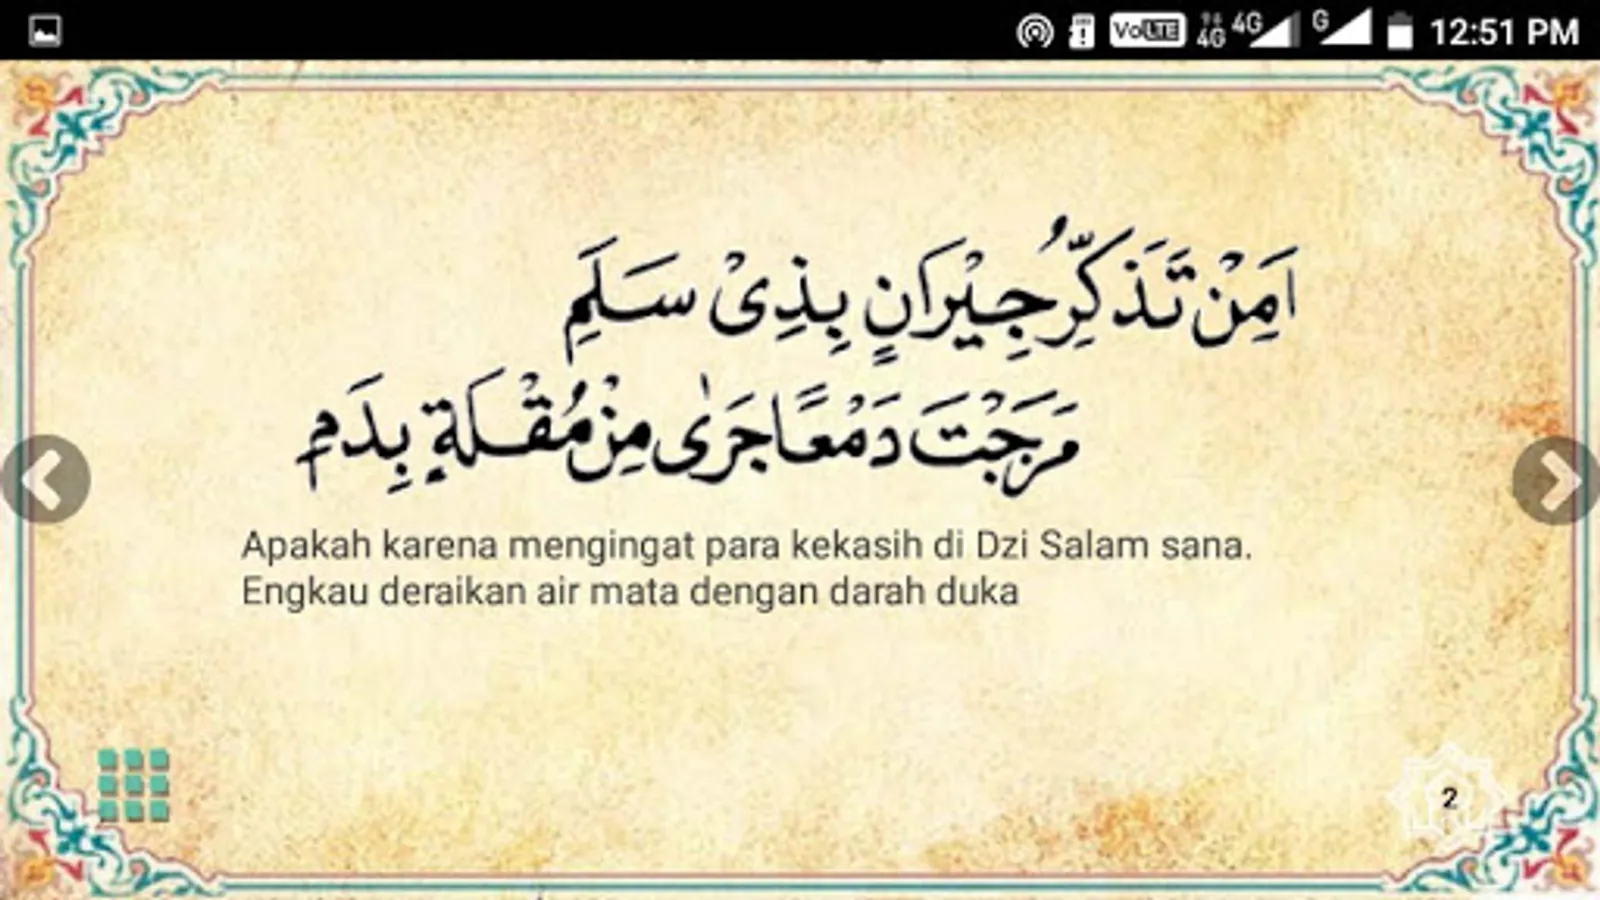 VoLTE 4G 4G G 12:51 PM
اَمِنْ تَذَكِّرُ جِيْرَانٍ بِذِيْ سَلَمِ
مَرَجْتَ دَمْعًا جَرٰى مِنْ مُقْلَةٍ بِدَمِ
Apakah karena mengingat para kekasih di Dzi Salam sana.
Engkau deraikan air mata dengan darah duka
2